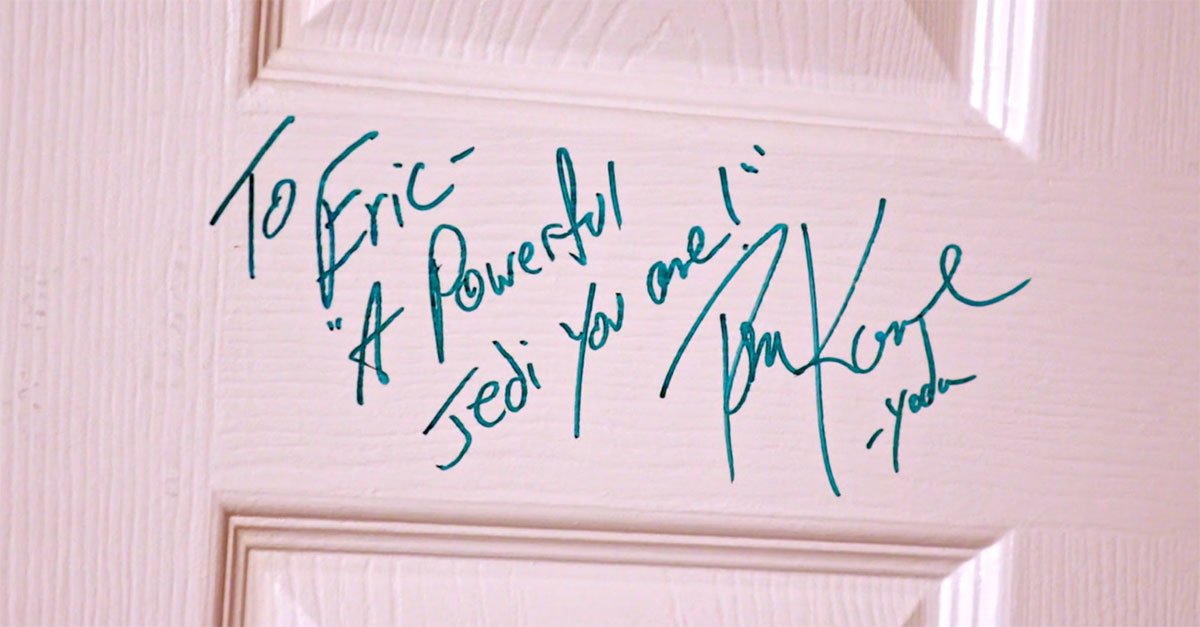 To Eric-
"A Powerful
Jedi you are!"
Tom Kane
-Yoda